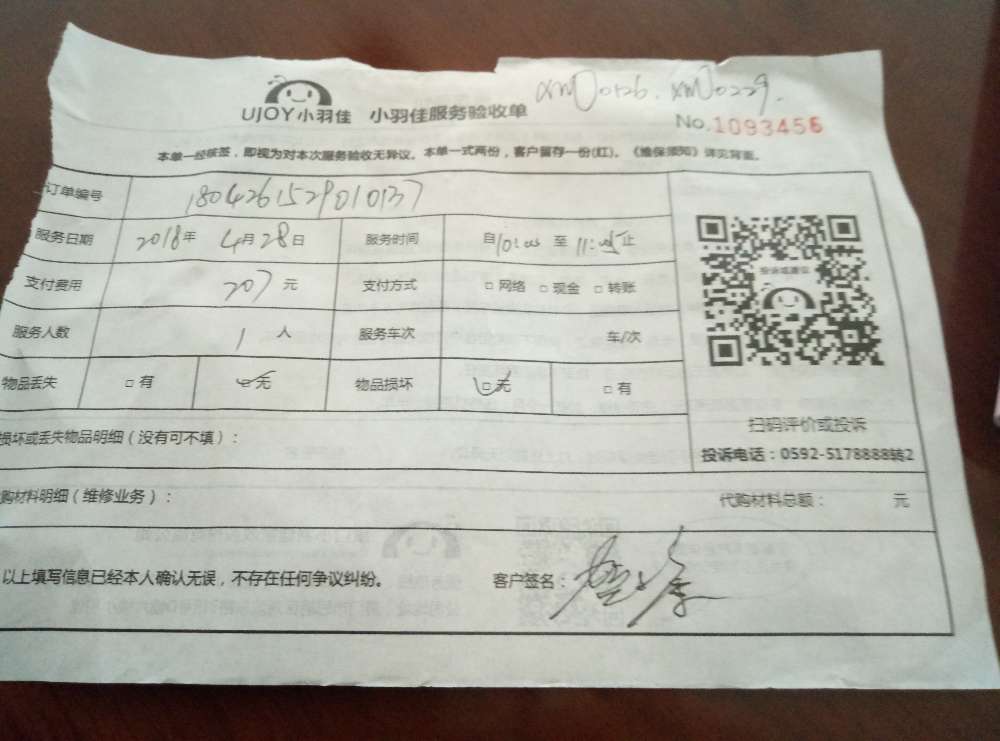 xm0126. xm0229.
UJOY小羽佳 小羽佳服务验收单
No.1093456
本单一经核签，即视为对本次服务验收无异议。本单一式两份，客户留存一份(红)。《维保须知》详见背面。
订单编号 1804261529010137
服务日期 2018年 4月28日 服务时间 自10:00 至 11:00止
支付费用 207元 支付方式 □网络 □现金 □转账
服务人数 1人 服务车次 车/次
物品丢失 □有 □无 物品损坏 □无 □有
投诉或建议
扫码评价或投诉
投诉电话：0592-5178888转2
损坏或丢失物品明细（没有可不填）：
购材料明细（维修业务）： 代购材料总额： 元
以上填写信息已经本人确认无误，不存在任何争议纠纷。 客户签名：